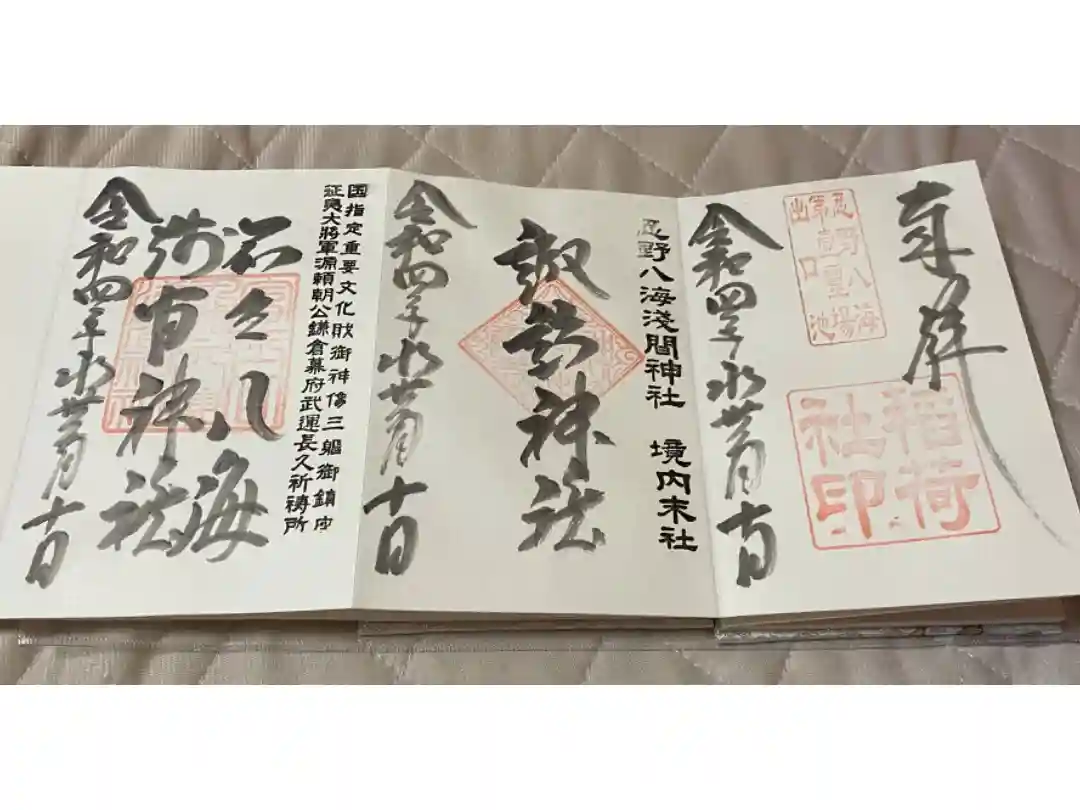 奉拝
忍野八海
第壹靈場
出口池
稲荷
社印
令和四年水無月十日
忍野八海淺間神社 境内末社
諏訪神社
令和四年水無月十日
国指定重要文化財御神像三軀御鎮座
征夷大將軍源頼朝公鎌倉幕府武運長久祈祷所
忍之八海
浅間神社
令和四年水無月十日